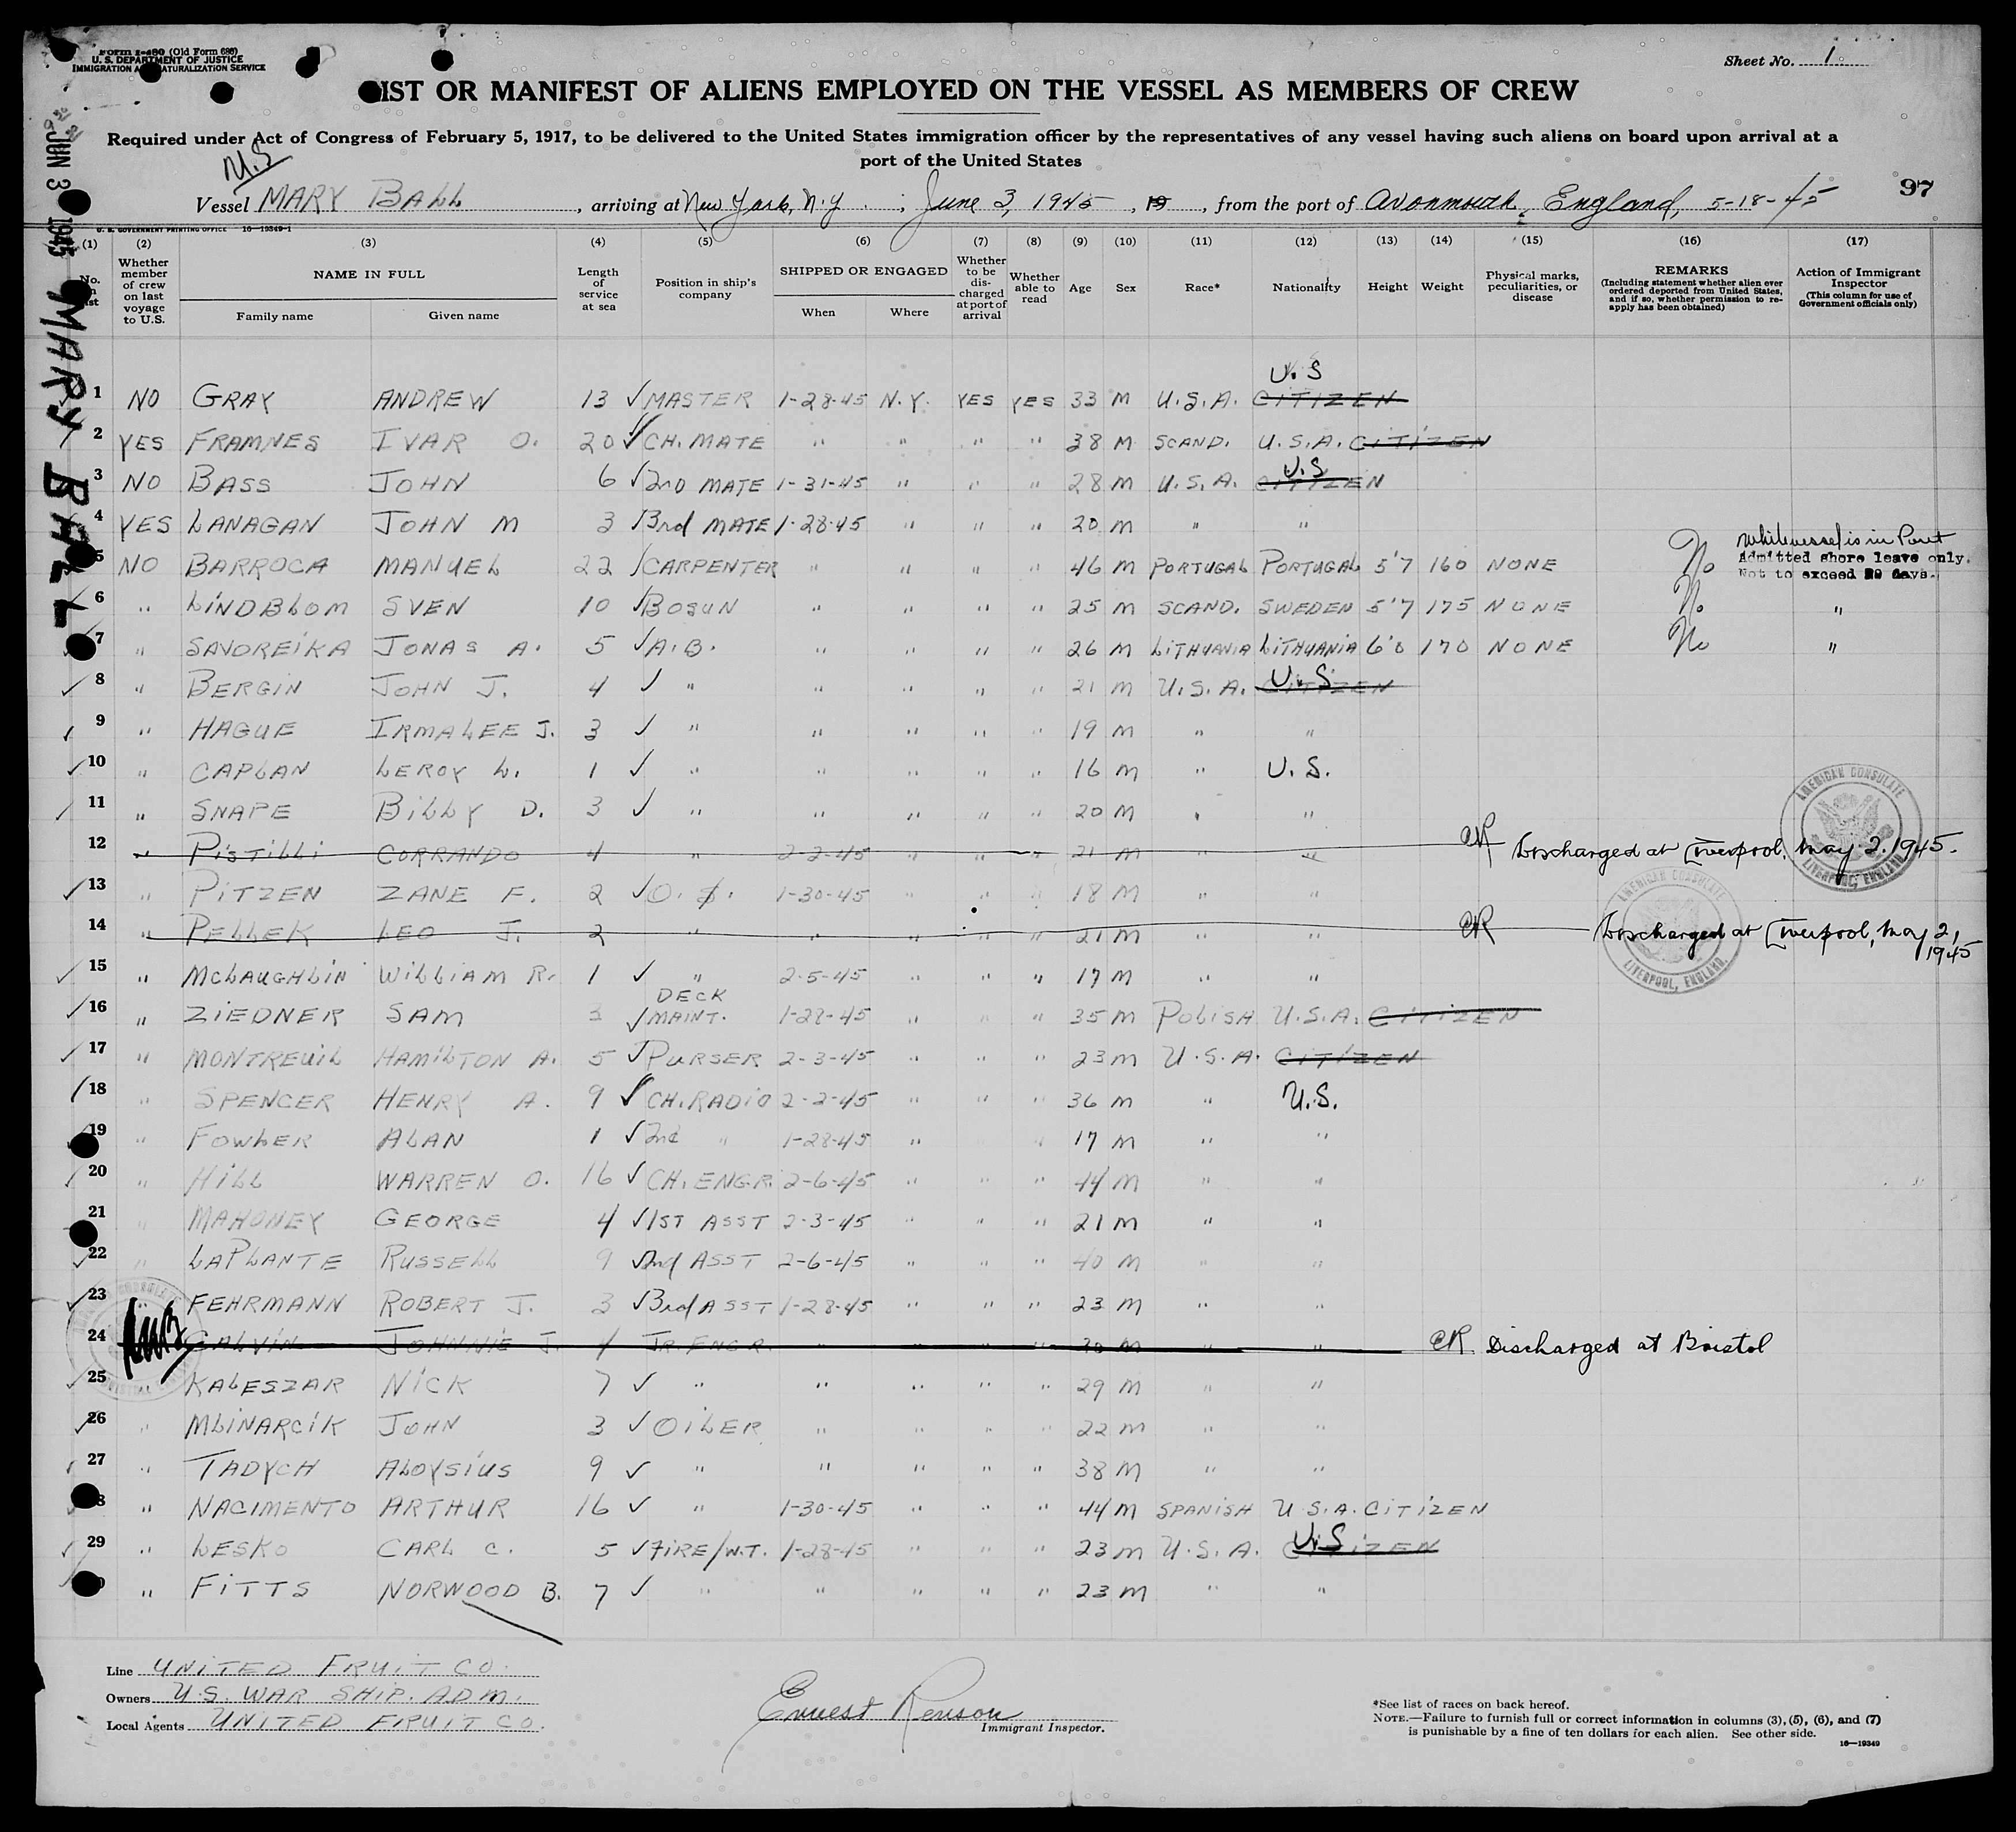 Form I-480 (Old Form 686)
U. S. DEPARTMENT OF JUSTICE
IMMIGRATION A NATURALIZATION SERVICE
Sheet No. 1
IST OR MANIFEST OF ALIENS EMPLOYED ON THE VESSEL AS MEMBERS OF CREW
Required under Act of Congress of February 5, 1917, to be delivered to the United States immigration officer by the representatives of any vessel having such aliens on board upon arrival at a
port of the United States
U.S
Vessel MARY BALL, arriving at New York, N.Y. ; June 3, 1945, 19, from the port of Avonmouth, England, 5-18-45
97
JUN 3 1945 MARY BALL
U. S. GOVERNMENT PRINTING OFFICE 16-19349-1
(1) (2) (3) (4) (5) (6) (7) (8) (9) (10) (11) (12) (13) (14) (15) (16) (17)
No. Whether member of crew on last voyage to U.S. NAME IN FULL Family name Given name Length of service at sea Position in ship's company SHIPPED OR ENGAGED When Where Whether to be discharged at port of arrival Whether able to read Age Sex Race* Nationality Height Weight Physical marks, peculiarities, or disease REMARKS (Including statement whether alien ever ordered deported from United States, and if so, whether permission to reapply has been obtained) Action of Immigrant Inspector (This column for use of Government officials only)
U.S
1 NO GRAY ANDREW 13 ✓ MASTER 1-28-45 N.Y. YES YES 33 M U.S.A. CITIZEN
2 YES FRAMNES IVAR O. 20 ✓ CH. MATE " " " " 38 M SCAND. U.S.A. CITIZEN
U.S
3 NO BASS JOHN 6 ✓ 2ND MATE 1-31-45 " " " 28 M U.S.A. CITIZEN
4 YES LANAGAN JOHN M 3 ✓ 3rd MATE 1-28-45 " " " 20 M " "
While vessel is in Port
5 NO BARROCA MANUEL 22 ✓ CARPENTER " " " " 46 M PORTUGAL PORTUGAL 5'7 160 NONE No Admitted shore leave only.
Not to exceed 29 days.
6 " LINDBLOM SVEN 10 ✓ BOSUN " " " " 25 M SCAND. SWEDEN 5'7 175 NONE No "
7 " SAVOREIKA JONAS A. 5 ✓ A.B. " " " " 26 M LITHUANIA LITHUANIA 6'0 170 NONE No "
8 " BERGIN JOHN J. 4 ✓ " " " " " 21 M U.S.A. CITIZEN U.S.
9 " HAGUE IRMALEE J. 3 ✓ " " " " " 19 M " "
10 " CAPLAN LEROY L. 1 ✓ " " " " " 16 M " U.S.
11 " SNAPE BILLY D. 3 ✓ " " " " " 20 M " "
AMERICAN CONSULATE
12 " PISTILLI CORRANDO 4 " 2-2-45 " " " 21 M " " CR Discharged at Liverpool, May 2. 1945.
LIVERPOOL, ENGLAND
13 " PITZEN ZANE F. 2 ✓ O. S. 1-30-45 " " " 18 M " "
AMERICAN CONSULATE
14 " PELLEK LEO J. 2 " " " " " 21 M " " CR Discharged at Liverpool, May 2, 1945
LIVERPOOL, ENGLAND.
15 " McLAUGHLIN WILLIAM R. 1 ✓ " 2-5-45 " " " 17 M " "
16 " ZIEDNER SAM 3 ✓ DECK MAINT. 1-28-45 " " " 35 M POLISH U.S.A. CITIZEN
17 " MONTREUIL HAMILTON A. 5 ✓ PURSER 2-3-45 " " " 23 M U.S.A. CITIZEN
18 " SPENCER HENRY A. 9 ✓ CH. RADIO 2-2-45 " " " 36 M " U.S.
19 " FOWLER ALAN 1 ✓ 2nd " 1-28-45 " " " 17 M " "
20 " HILL WARREN O. 16 ✓ CH. ENGR. 2-6-45 " " " 44 M " "
21 " MAHONEY GEORGE 4 ✓ 1ST ASST 2-3-45 " " " 21 M " "
22 " LAPLANTE RUSSELL 9 ✓ 2nd ASST 2-6-45 " " " 40 M " "
23 " FEHRMANN ROBERT J. 3 ✓ 3rd ASST 1-28-45 " " " 23 M " "
24 GALVIN JOHNNIE J. 4 JR. ENGR. " " " " 30 M " " CR Discharged at Bristol
25 " KALESZAR NICK 7 ✓ " " " " " 29 M " "
26 " MLINARCIK JOHN 3 ✓ OILER " " " " 22 M " "
27 " TADYCH ALOYSIUS 9 ✓ " " " " " 38 M " "
8 " NACIMENTO ARTHUR 16 ✓ " 1-30-45 " " " 44 M SPANISH U.S.A. CITIZEN
29 " LESKO CARL C. 5 ✓ FIRE/W.T. 1-28-45 " " " 23 M U.S.A. CITIZEN U.S
" FITTS NORWOOD B. 7 ✓ " " " " " 23 M " "
Line UNITED FRUIT CO.
Owners U.S. WAR SHIP. ADM.
Local Agents UNITED FRUIT CO.
Ernest Renson
Immigrant Inspector.
*See list of races on back hereof.
NOTE.—Failure to furnish full or correct information in columns (3), (5), (6), and (7)
is punishable by a fine of ten dollars for each alien. See other side.
16-19349